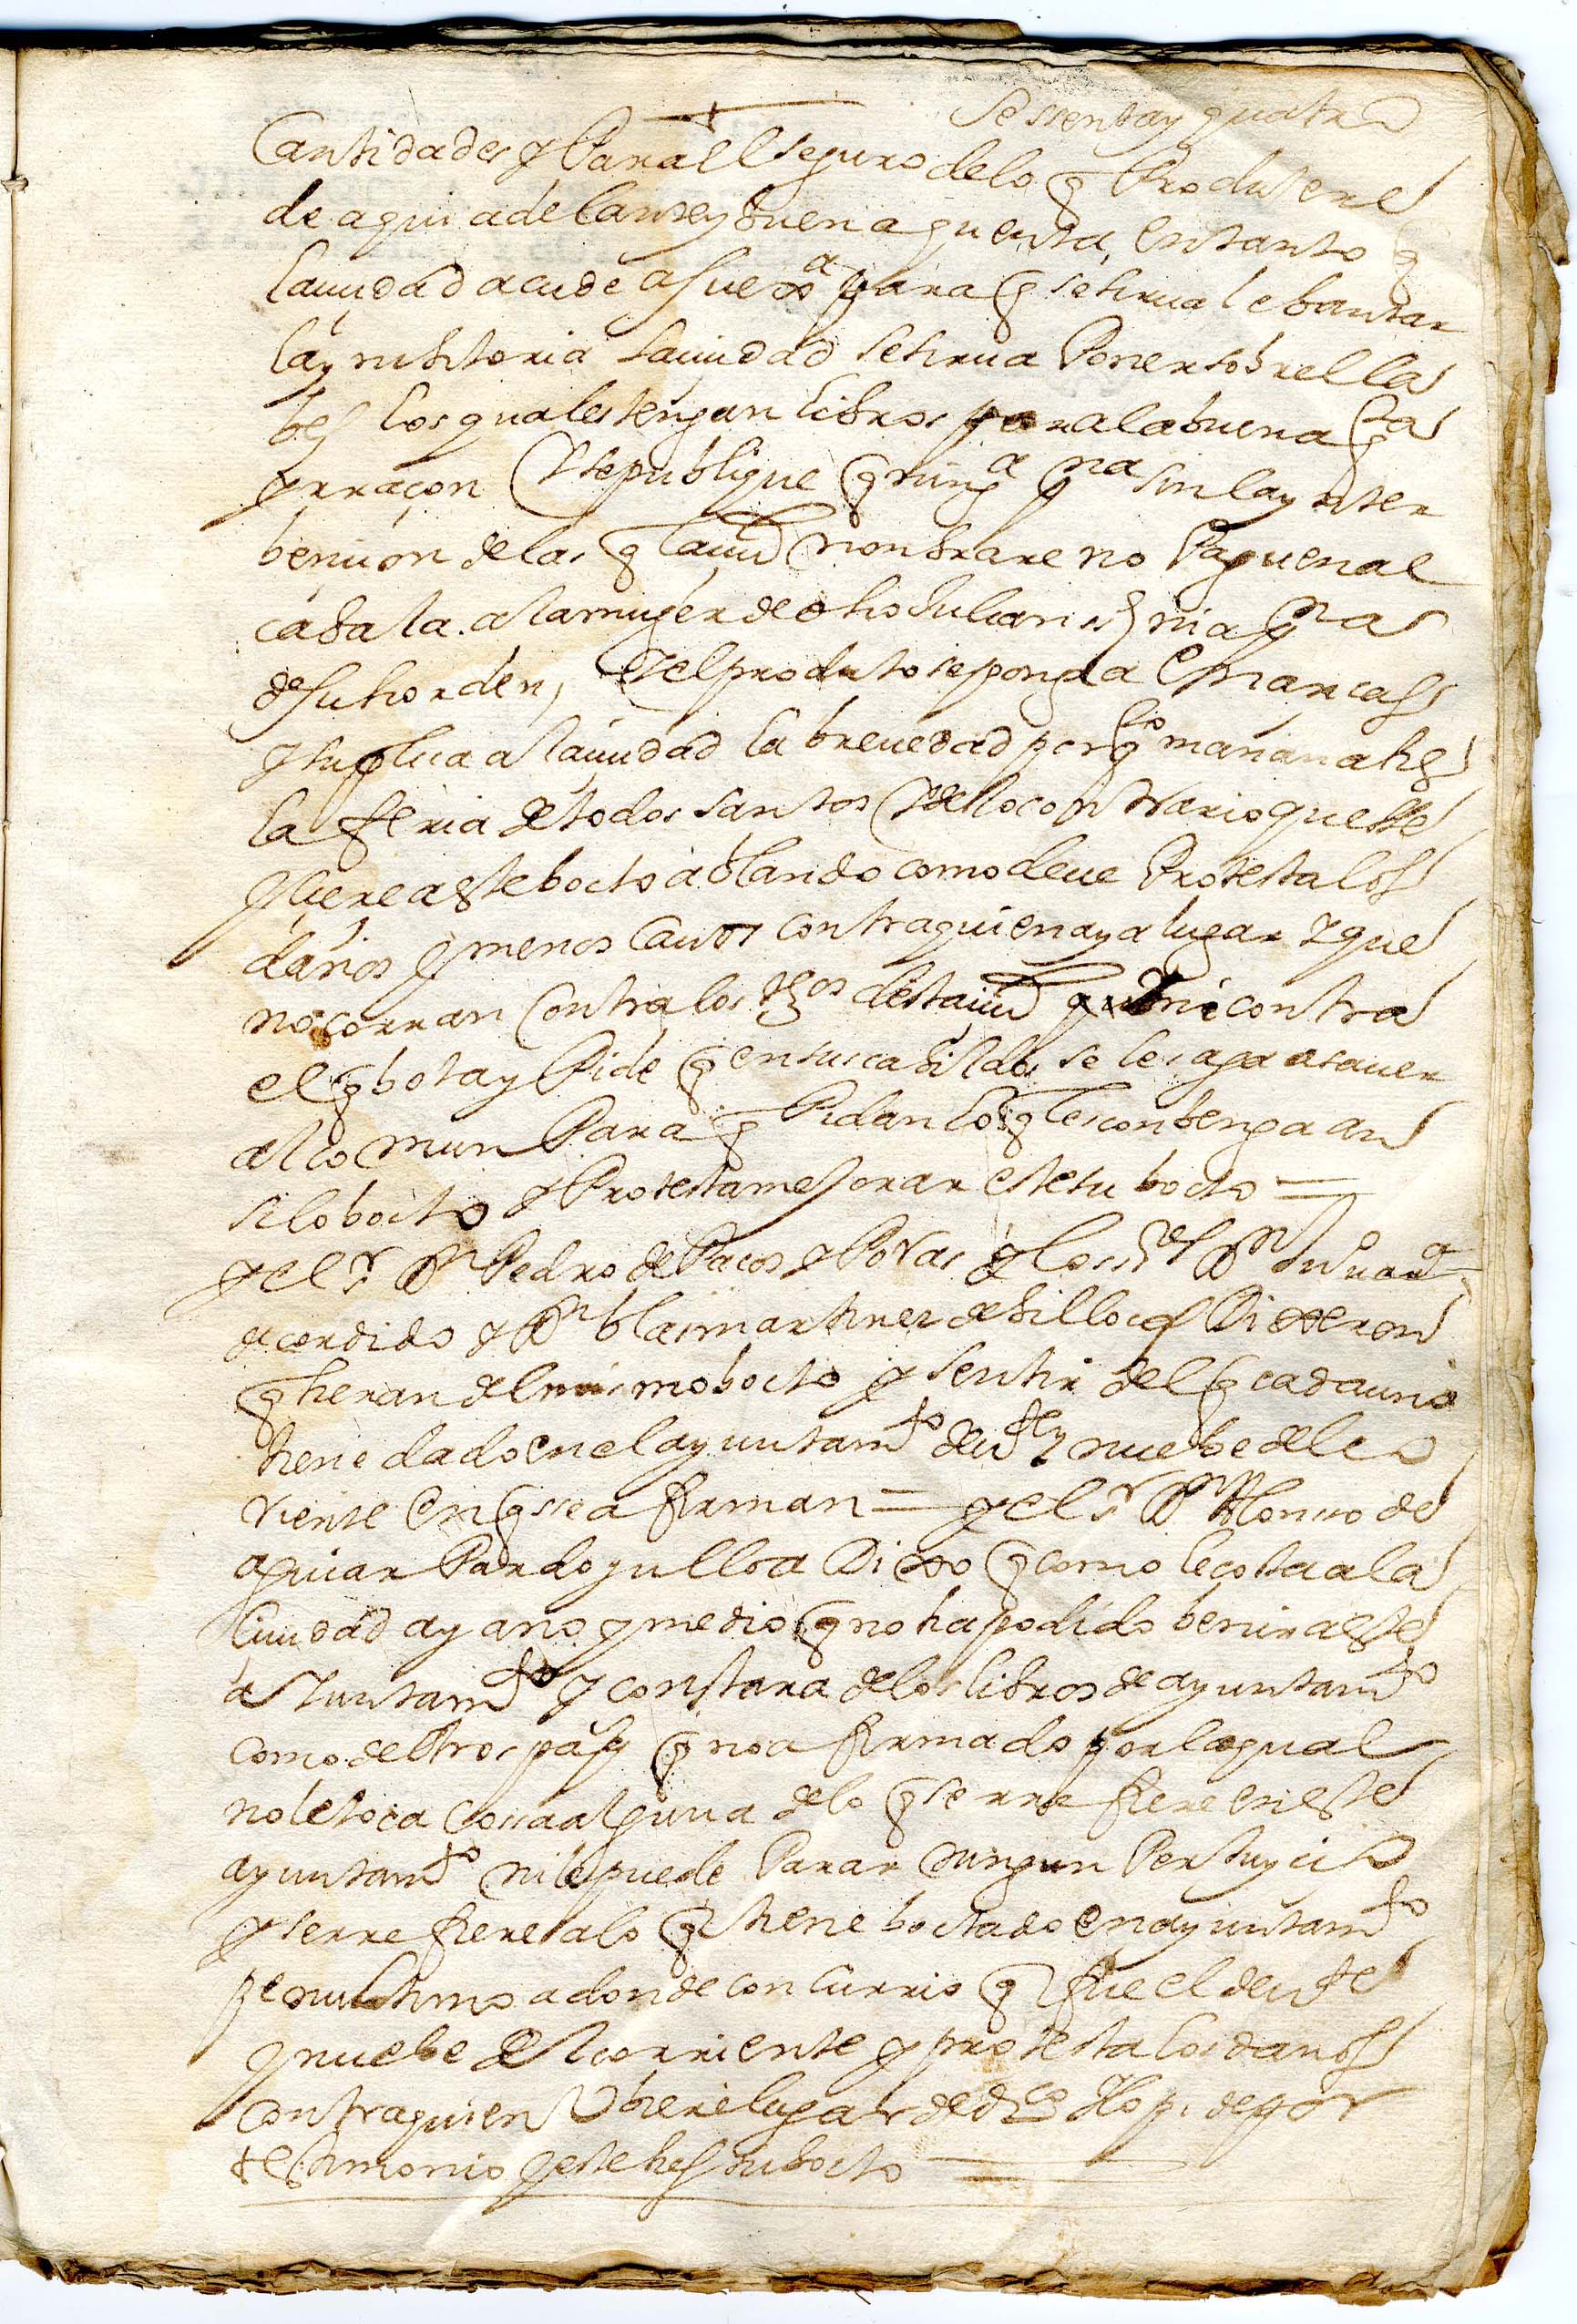 Sessenta y quatro
Cantidades y Para el seguro de lo q Produxere
de aqui adelante y buena quenta, entanto q
la ciudad acude a su exa para q se sirua lebantar
la ynibitoria la ciudad se sirua Poner sobrellabes
los quales tengan libros para la buena qta
y rraçon Y se publique q ning.a p.na sin la ynter
bencion de las q la ciud nonbrare no Paguen al
cabala. a la muger de dho Julian ni a p.nas
de su horden, Y el produto se ponga en arcas
y suplica a la ciudad la brevedad por q.to mañana hes
la feria de todos santos Y de lo contrario questte
quiere a este bocto ablando como deue Protesta los
daños y menos cauos contra quien aya lugar Y que
no corran Contra los v.os desta ciud ni contra
el q bota y Pide q en sus cabildos se les aga a sauer
al comun Para q Pidan lo q les conbenga an
si lo bocto y Protesta mejorar este su bocto =
y el s.r D.n Pedro de Pacos y Poras y los s.res D.n
de cordido y D.n blas martinez de billoca Dixeron
q heran del mismo bocto y sentir del q cada uno
tiene dado en el ayuntam.to de v.te y nuebe del co
rriente en q sse afirman = y el s.r D.n Alonso de
aguiar Pardo y ulloa Dixo q como le costa a la
Ciudad ay ano y medio q no ha podido benir a este
aiuntam.to y constara de los libros de ayuntam.to
como de otros q no a firmado por lo qual
no le toca cossa alguna de lo q se rrefiere en este
ayuntam.to ni le puede Parar ningun Perjuycio
y se rrefiere a lo q tiene boctado en ayuntam.to
penultimo adonde concurrio q fue el de v.te
y nuebe del corriente y protesta los danos
contra quien Ubiere lugar de d.co Y lo pide por
testimonio y este hes su bocto =